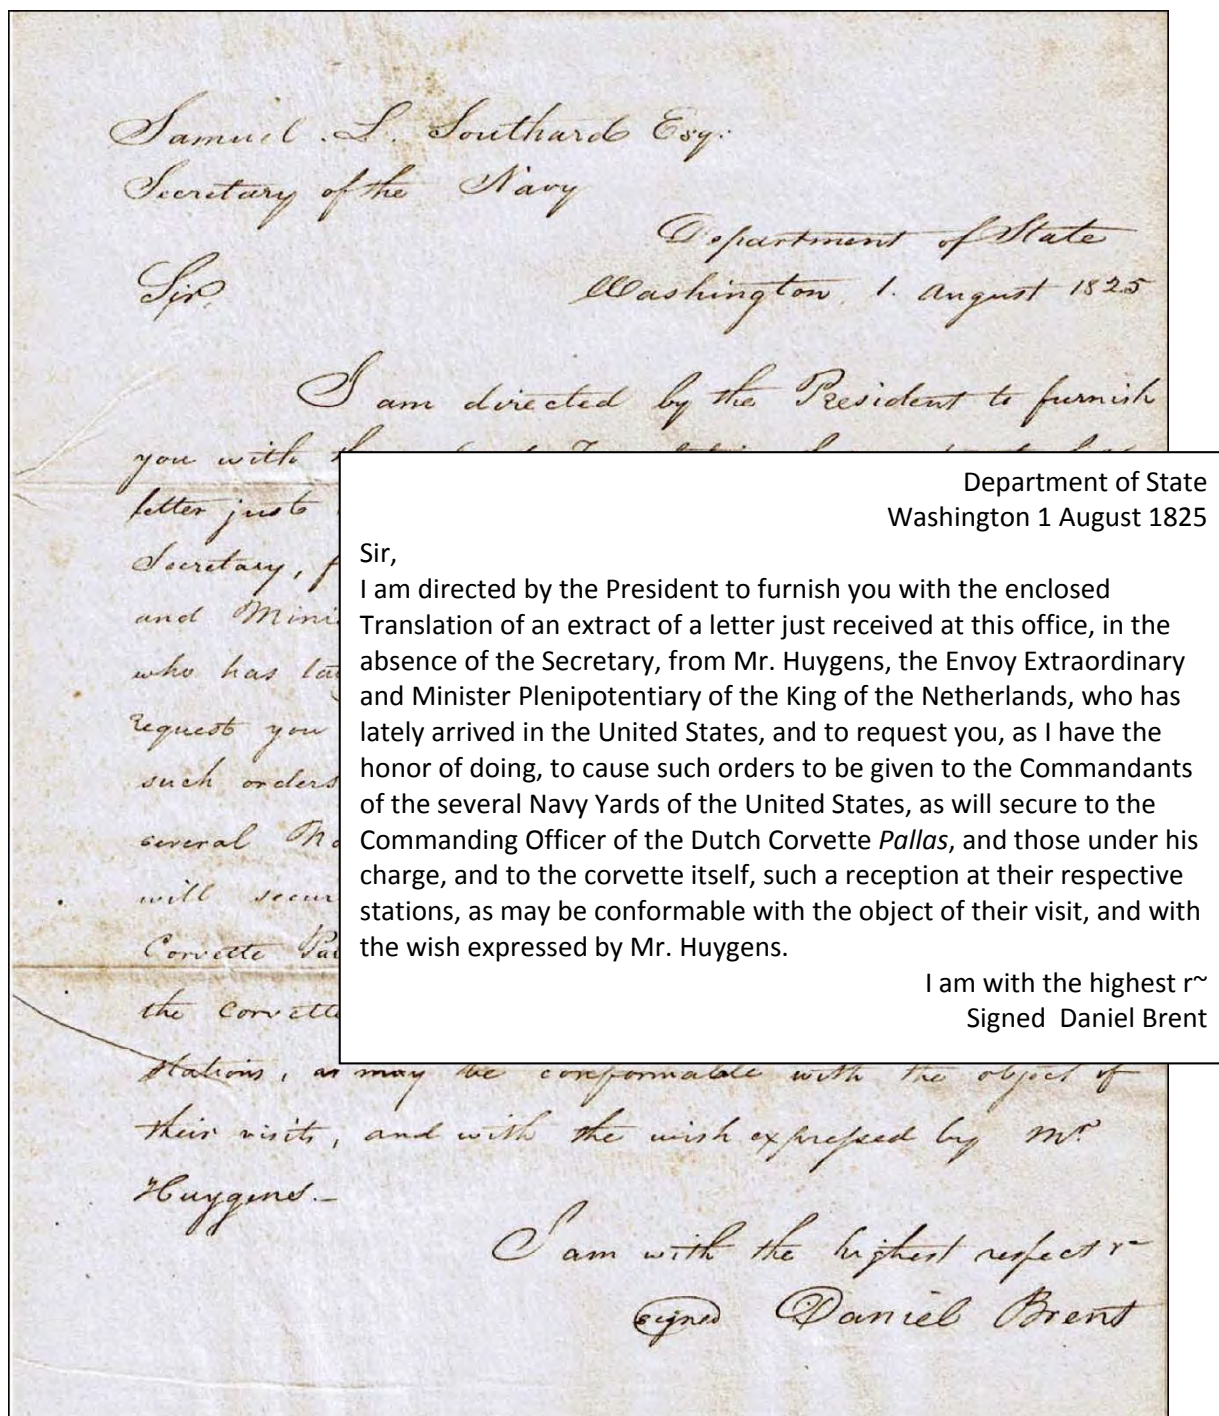 Samuel . L. Southard Esq:
Secretary of the Navy
Department of State
Sir, Washington, 1. August 1825
I am directed by the President to furnish
you with
letter just
Secretary,
and
who has
request you
such orders
several
will
Corvette
the corvette
stations, as may be conformable with the object of
their visits, and with the wish expressed by Mr
Huygens.—
I am with the highest respect r~
signed Daniel Brent
Department of State
Washington 1 August 1825
Sir,
I am directed by the President to furnish you with the enclosed
Translation of an extract of a letter just received at this office, in the
absence of the Secretary, from Mr. Huygens, the Envoy Extraordinary
and Minister Plenipotentiary of the King of the Netherlands, who has
lately arrived in the United States, and to request you, as I have the
honor of doing, to cause such orders to be given to the Commandants
of the several Navy Yards of the United States, as will secure to the
Commanding Officer of the Dutch Corvette Pallas, and those under his
charge, and to the corvette itself, such a reception at their respective
stations, as may be conformable with the object of their visit, and with
the wish expressed by Mr. Huygens.
I am with the highest r~
Signed Daniel Brent